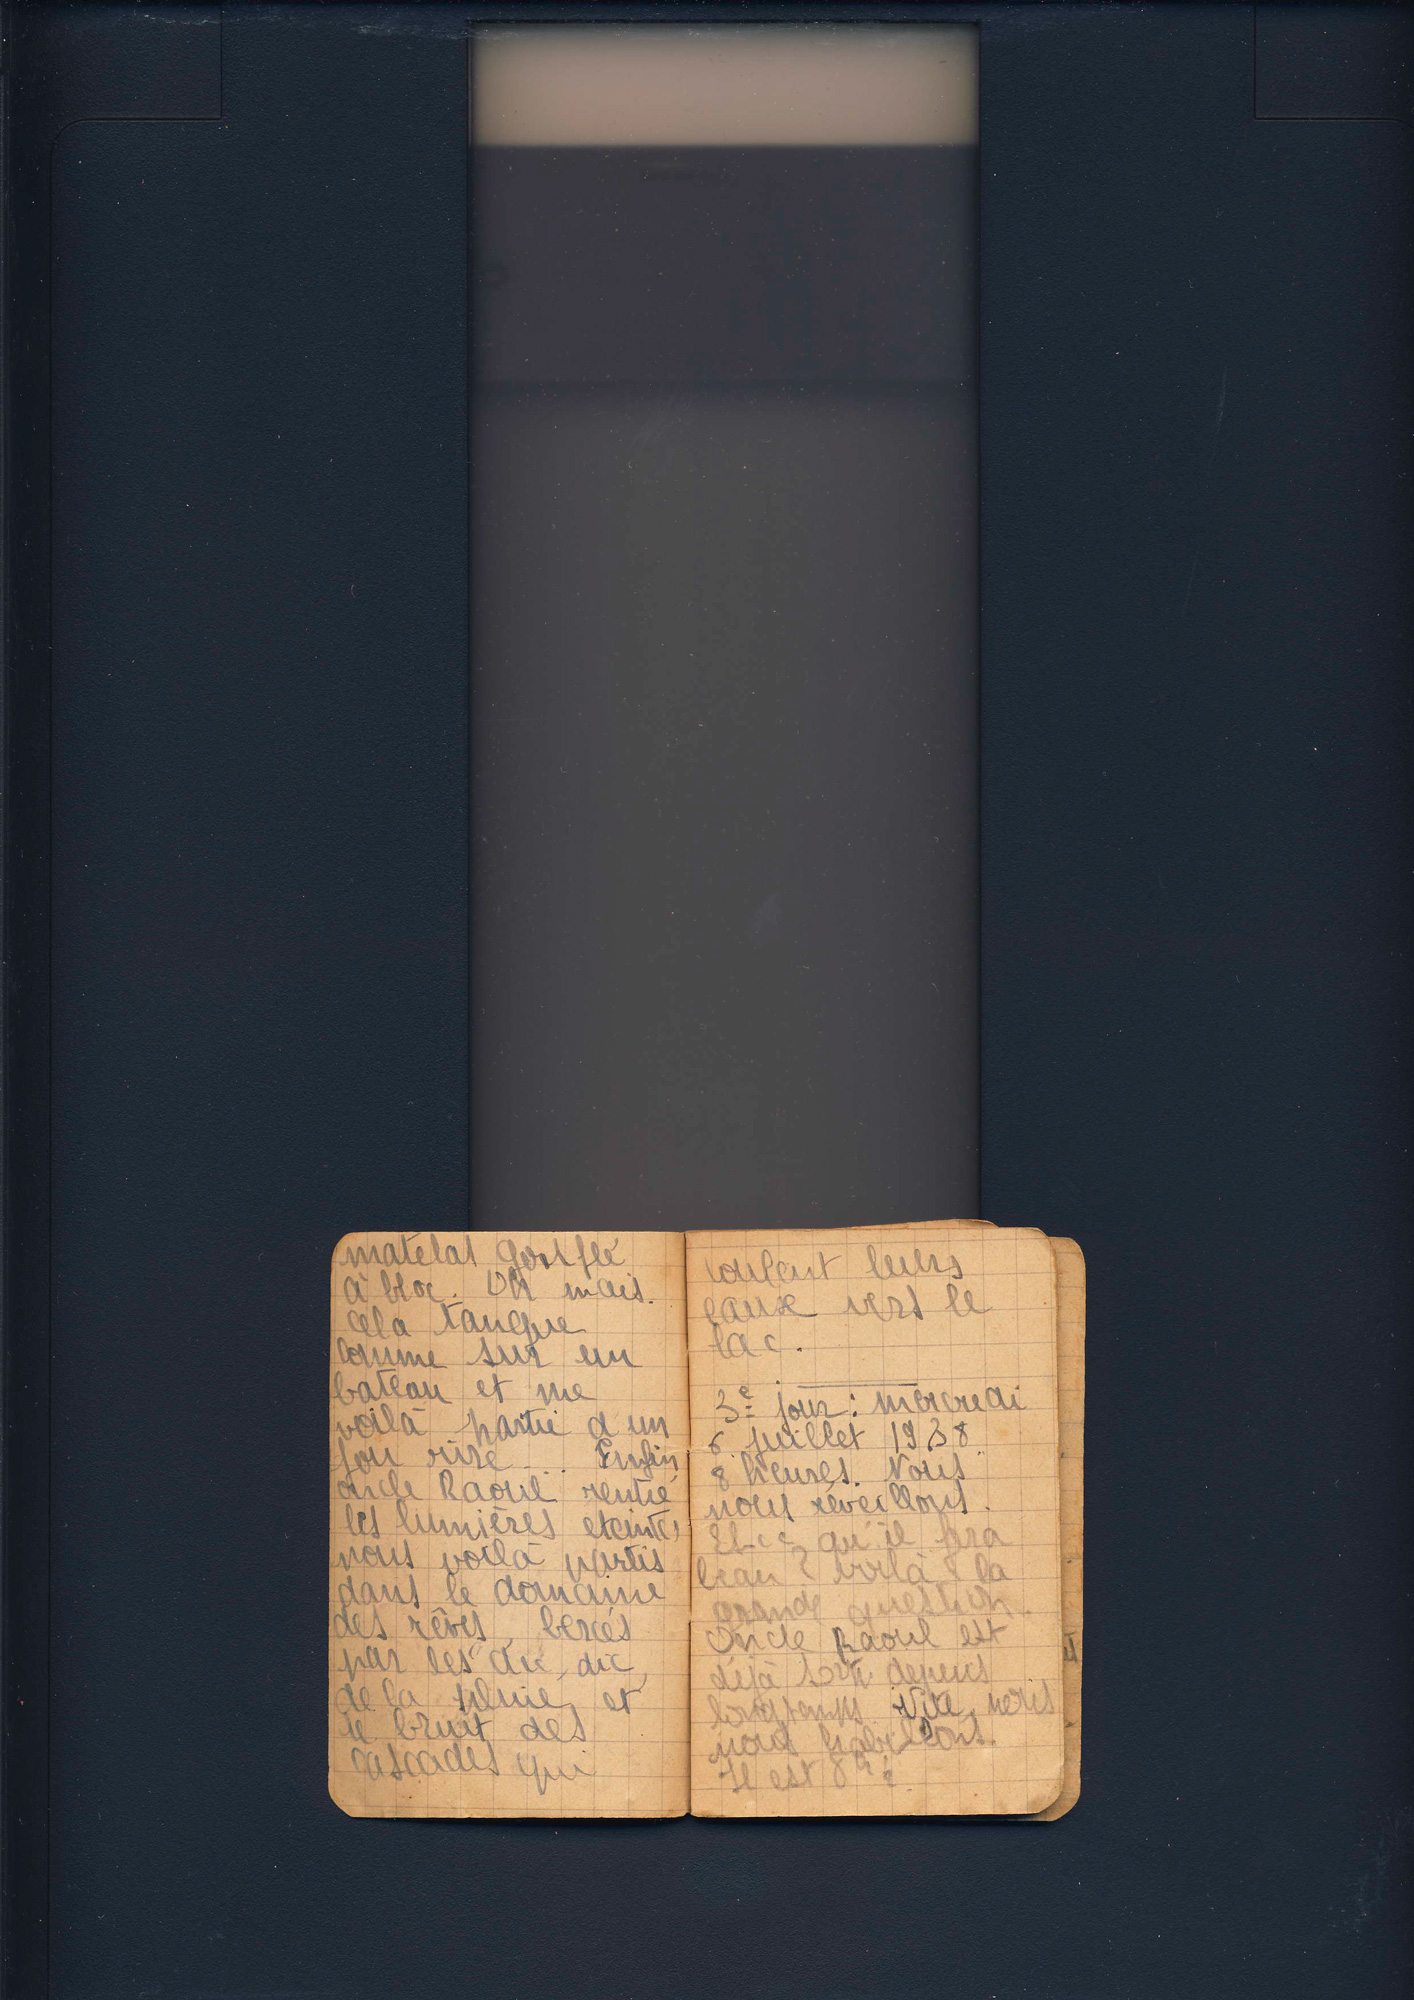 matelas gonflé
à bloc. Oh mais.
cela tangue
comme sur un
bateau et me
voilà partie d'un
fou rire... Enfin
oncle Raoul rentré
les lumières eteintes
nous voilà partis
dans le domaine
des rêves, bercés
par les
de la pluie, et
le bruit des
cascades qui
roulent leurs
eaux vers le
lac.
3e jour: mercredi
6 juillet 1938
8 heures. Nous
nous réveillons.
Est-ce qu'il fera
beau? voilà la
grande question.
Oncle Raoul est
déjà sorti depuis
longtemps. Vite, nous
nous habillons.
Il est 8h